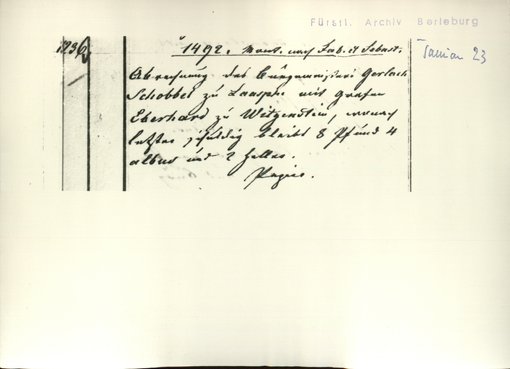 Fürstl. Archiv Berleburg
1236
1492. Mont. nach Fab. et Sebast.
Januar 23
Abrechnung des Bürgermeisters Gerlach
Schobbel zu Laasphe mit Grafen
Eberhard zu Witgenstein, wonach
letzter schuldig bleibt 8 Pfund 4
albus und 2 Heller.
Papier.